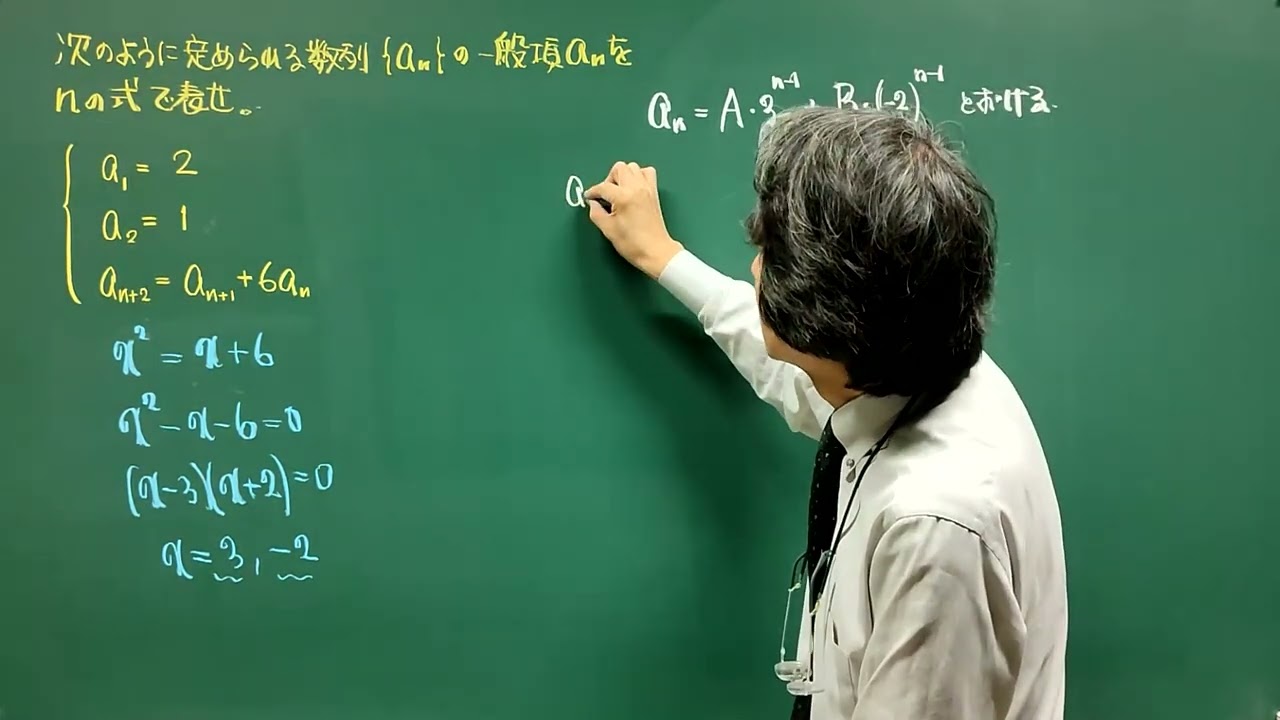 次のように定められる数列{aₙ}の一般項aₙを
nの式で表せ。
a₁ = 2
a₂ = 1
aₙ₊₂ = aₙ₊₁ + 6aₙ
x² = x + 6
x² - x - 6 = 0
(x - 3)(x + 2) = 0
x = 3, -2
aₙ = A・3ⁿ⁻¹ B・(-2)ⁿ⁻¹ とおける.
a